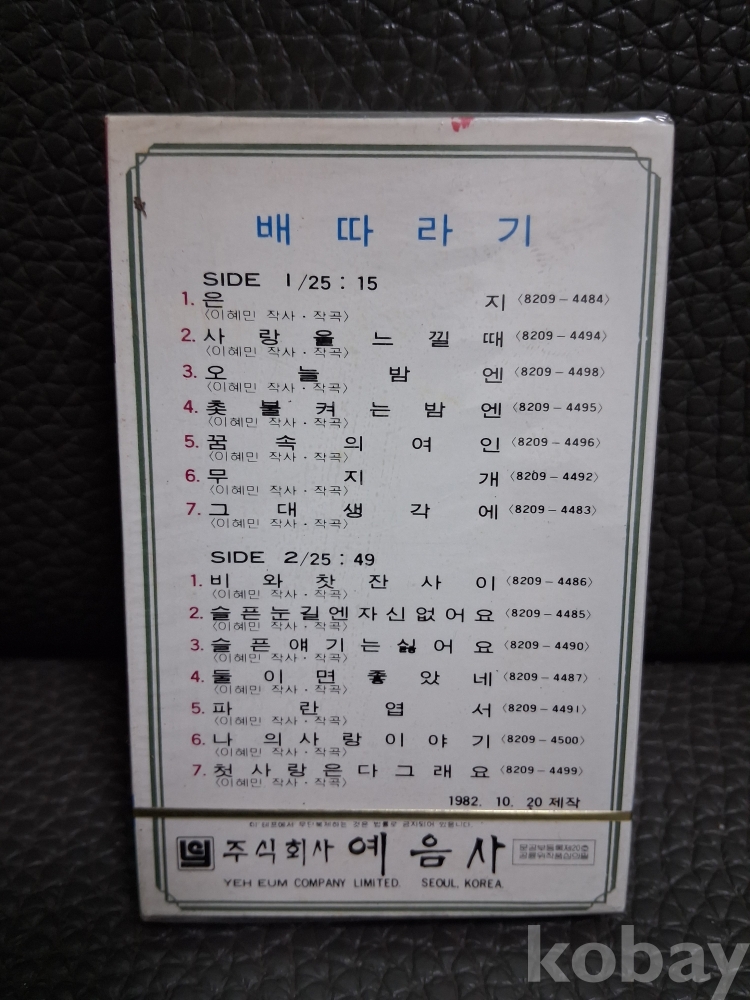 배따라기
SIDE 1/25 : 15
1. 은지 〈8209-4484〉
〈이혜민 작사·작곡〉
2. 사랑을느낄때 〈8209-4494〉
〈이혜민 작사·작곡〉
3. 오늘밤엔 〈8209-4498〉
〈이혜민 작사·작곡〉
4. 촛불켜는밤엔 〈8209-4495〉
〈이혜민 작사·작곡〉
5. 꿈속의여인 〈8209-4496〉
〈이혜민 작사·작곡〉
6. 무지개 〈8209-4492〉
〈이혜민 작사·작곡〉
7. 그대생각에 〈8209-4483〉
〈이혜민 작사·작곡〉
SIDE 2/25 : 49
1. 비와찻잔사이 〈8209-4486〉
〈이혜민 작사·작곡〉
2. 슬픈눈길엔자신없어요 〈8209-4485〉
〈이혜민 작사·작곡〉
3. 슬픈얘기는싫어요 〈8209-4490〉
〈이혜민 작사·작곡〉
4. 둘이면좋았네 〈8209-4487〉
〈이혜민 작사·작곡〉
5. 파란엽서 〈8209-4491〉
〈이혜민 작사·작곡〉
6. 나의사랑이야기 〈8209-4500〉
〈이혜민 작사·작곡〉
7. 첫사랑은다그래요 〈8209-4499〉
〈이혜민 작사·작곡〉
1982. 10. 20 제작
이 테프에서 무단복제하는 것은 법률로 금지되어 있읍니다.
주식회사 예음사
YEH EUM COMPANY LIMITED. SEOUL, KOREA.
kobay